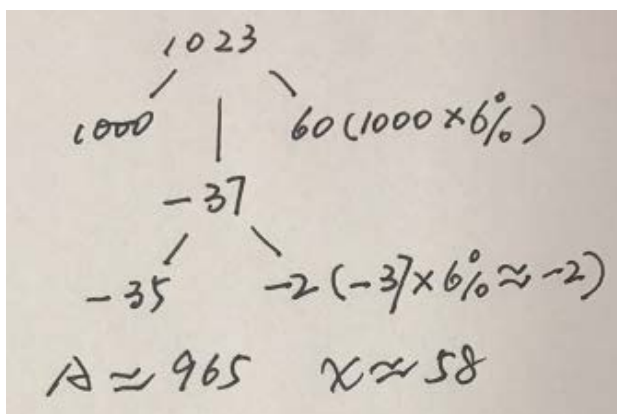 1023
1000 60(1000×6%)
-37
-35 -2(-37×6%≈-2)
A≈965 x≈58